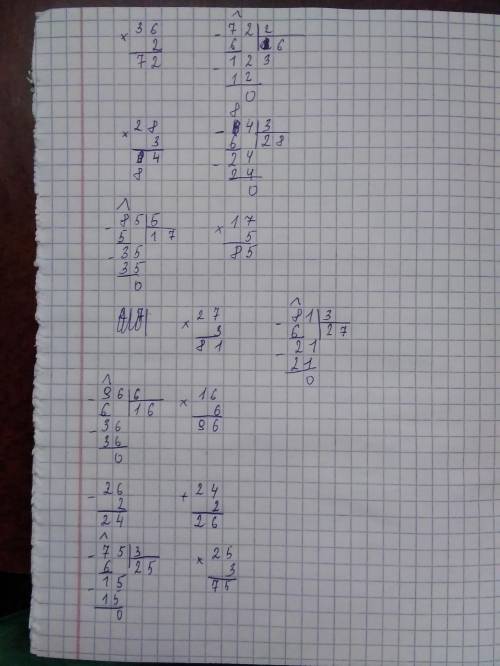 × 36 - 72 | 2
2 6 36
72 - 12 3
12
0
× 28 - 84 | 3
3 6 28
84 - 24
24
0
- 85 | 5 × 17
5 17 5
- 35 85
35
0
× 27 - 81 | 3
3 6 27
81 - 21
21
0
- 96 | 6 × 16
6 16 6
- 36 96
36
0
- 26 + 24
2 2
24 26
- 75 | 3 × 25
6 25 3
- 15 75
15
0